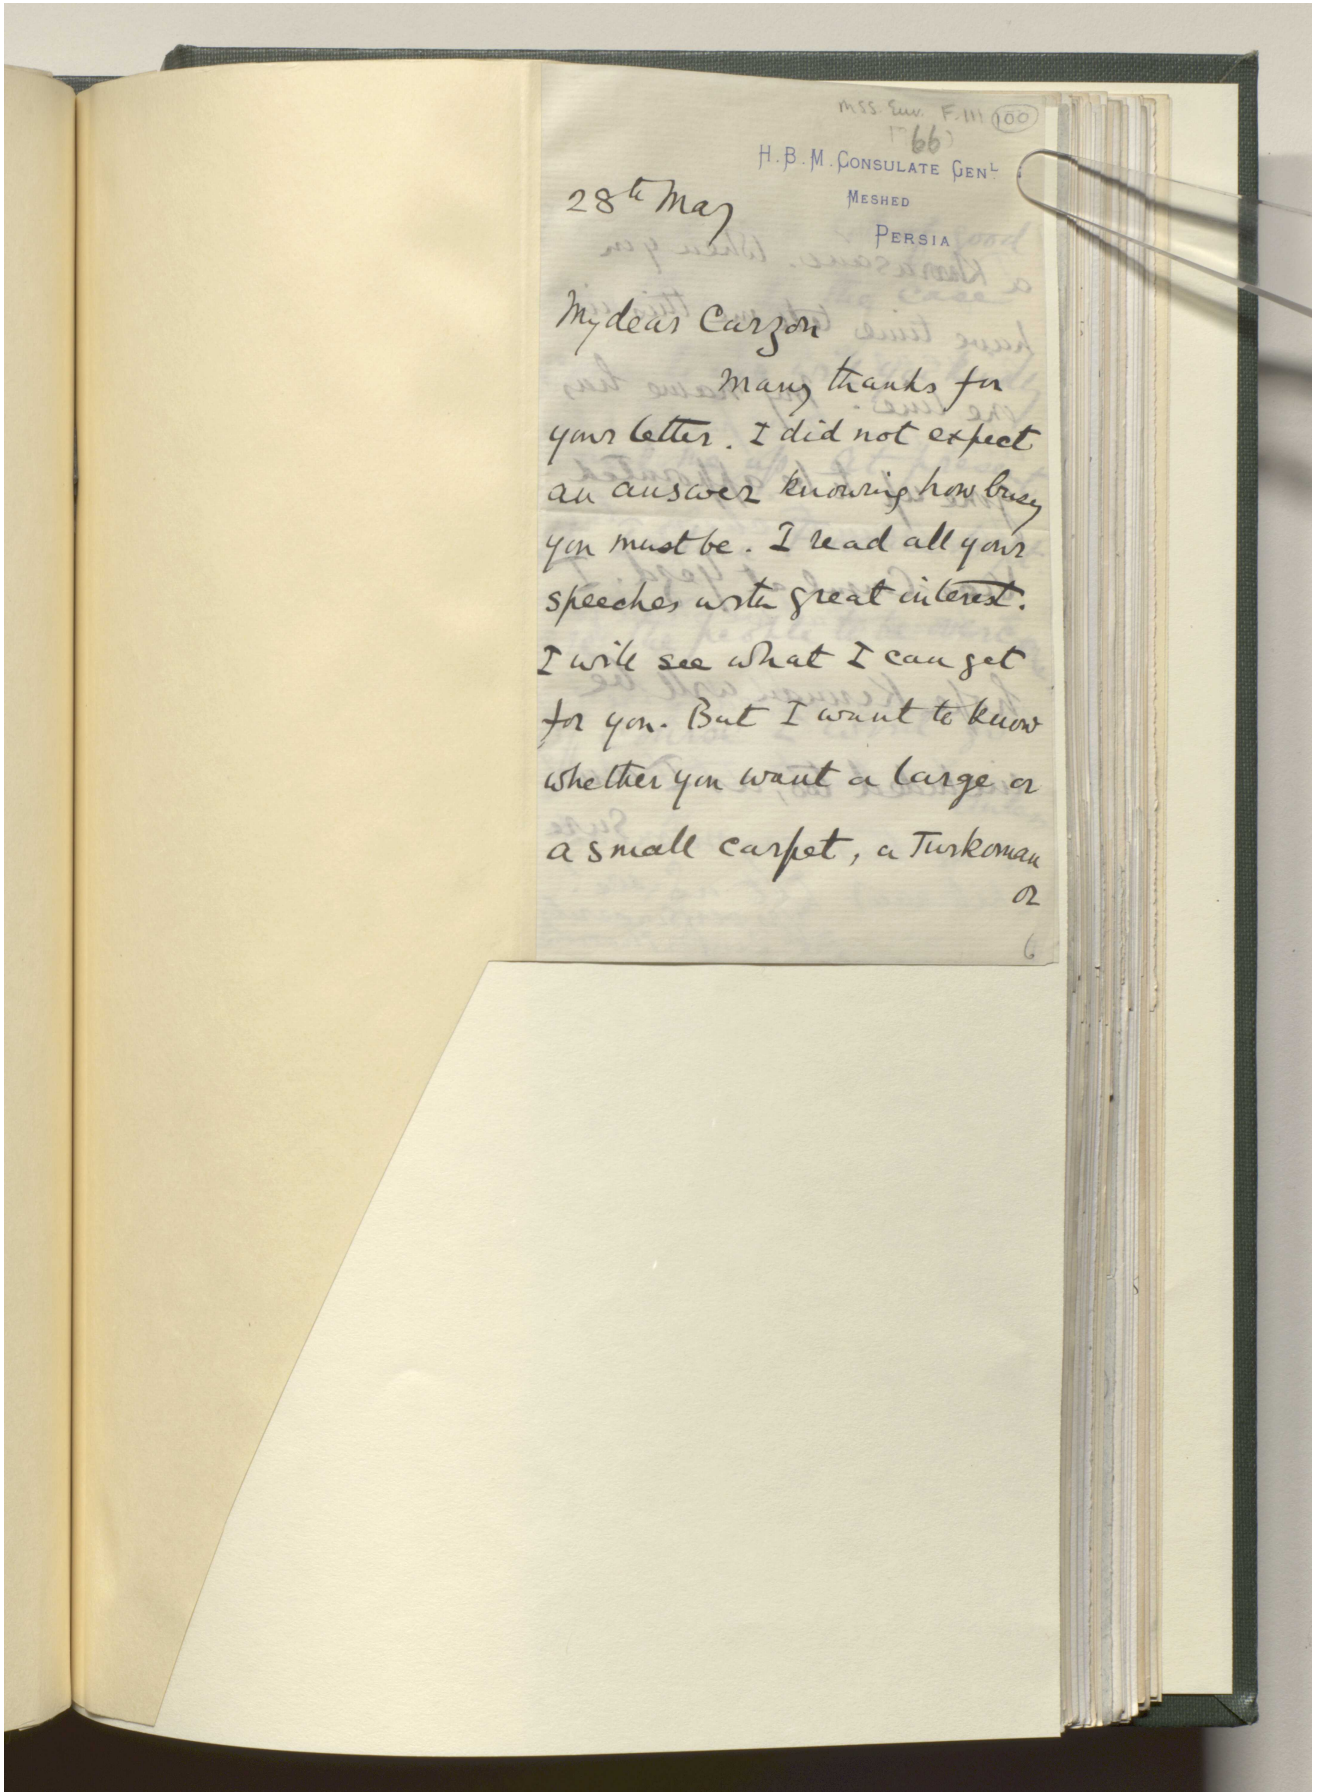 Mss. Eur. F.111 100
66
H.B.M. CONSULATE GENL
MESHED
PERSIA
28th May
My dear Curzon
Many thanks for
your letter. I did not expect
an answer knowing how busy
you must be. I read all your
speeches with great interest.
I will see what I can get
for you. But I want to know
whether you want a large or
a small carpet, a Turkoman
or
6